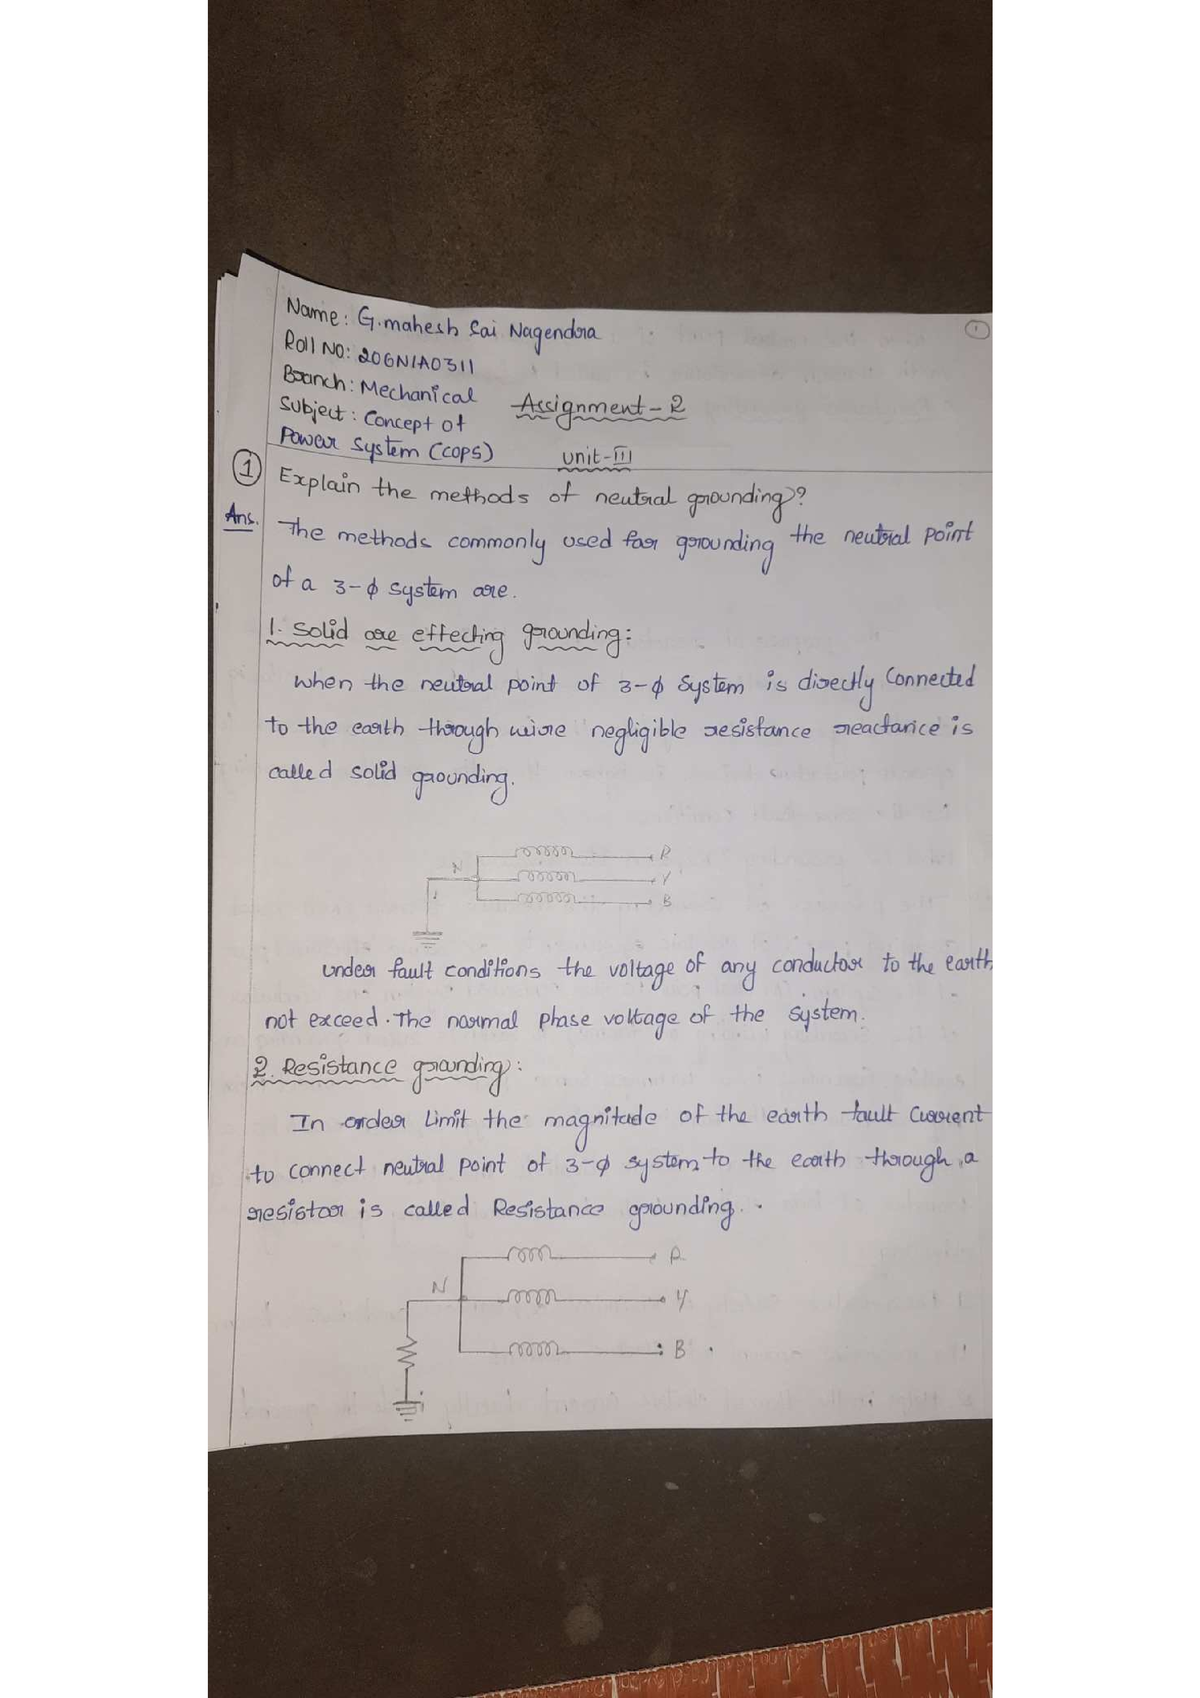 1
Name: G.mahesh Sai Nagendra
Roll NO: 206N1A0311
Branch: Mechanical
Subject: Concept of
Power System (COPS)
Assignment-2
unit-III
1 Explain the methods of neutral grounding?
Ans. The methods commonly used for grounding the neutral point
of a 3-ϕ system are.
1. Solid are effecting grounding:
When the neutral point of 3-ϕ System is directly Connected
to the earth through wire negligible resistance reactance is
called solid grounding.
R
N
Y
B
under fault conditions the voltage of any conductor to the earth
not exceed. The normal phase voltage of the system.
2. Resistance grounding:
In order Limit the magnitude of the earth fault Current
to connect neutral point of 3-ϕ system to the earth through a
resistor is called Resistance grounding.
R
N
Y
B